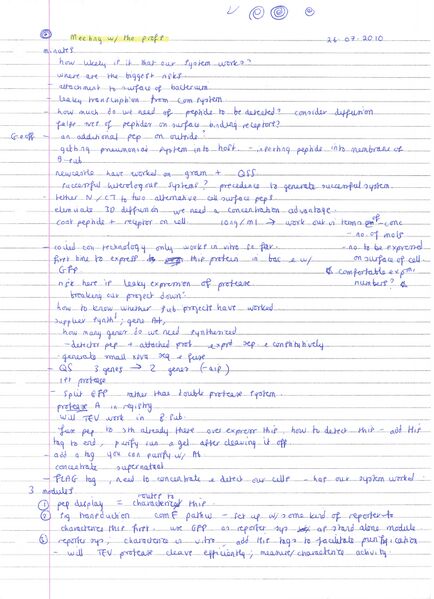 Meeting w/ the profs 26.07.2010
minutes
how likely is it that our system works?
where are the biggest risks.
- attachment to surface of bacterium.
- leaky transcription from com system.
- how much do we need of peptide to be detected? consider diffusion
false +ves of peptides on surface binding receptors?
Geoff - an additional pep on outside?
- getting pneumoniae system into host - inserting peptide into membrane of
B-sub
newcastle have worked on gram + QSS
successful heterologous systems? precedence to generate successful system.
- tether N/CT to two alternative cell surface peps
eliminate 3D diffusion we need a concentration advantage.
coat peptide + receptor on cell. 10ng/ml → work out in terms of - conc
- no. of mols
- coiled coil technology only works in vitro so far. - no. to be expressed
first time to express this protein in bac w/ on surface of cell.
GFP & comfortable exp
risk here is leaky expression of protease numbers?
breaking our project down:
how to know whether sub-projects have worked
supplier synth: gene Art,
how many genes do we need synthesized
- detector pep + attached prot expr sep & constitutively.
- generate small xtra seq & fuse
- QS 3 genes → 2 genes
1 protease
- split GFP rather than double protease system.
protease A in registry
will TEV work in B. sub
fuse pep to sth already there over express this, how to detect this - add His
tag to end, purify run a gel after cleaving it off.
- add a tag you can purify w/ Ab
concentrate supernatant
- FLAG tag, need to concentrate & detect our cells - has our system worked.
3 modules
① pep display = characterised this. routes to
② sig transduction comE pathw - set up w/ some kind of reporter to
characterise this first use GFP as reporter sys as stand alone module
③ reporter sys, characterise in vitro - add His tags to facilitate purification
- will TEV protease cleave efficiently; measure/characterise activity.